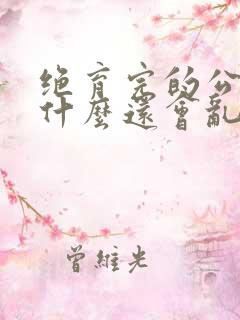 绝育完的公
什麼還會亂
曾維光